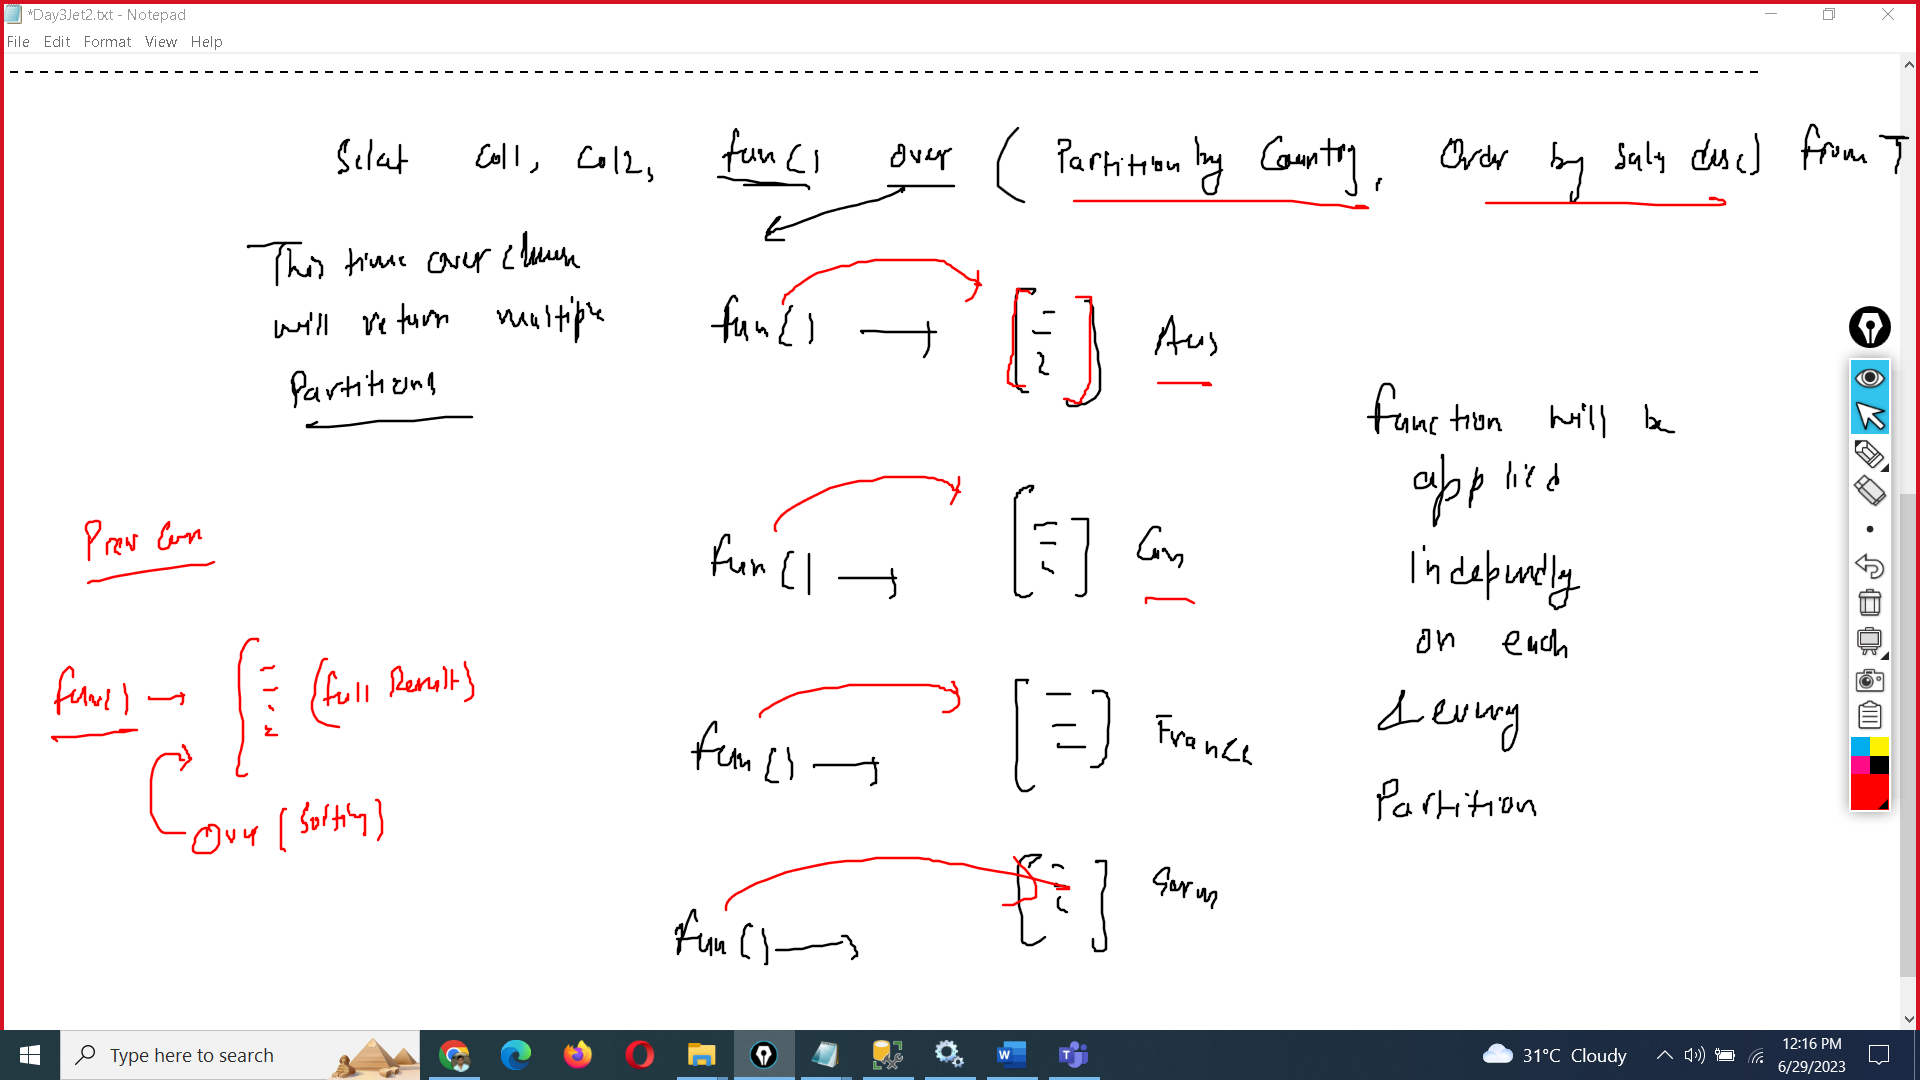 *Day3Jet2.txt - Notepad
File Edit Format View Help
Select Col1, Col2, fun() over ( Partition by Country, Order by Sales desc) from T
This time over clause
will return multiple
Partitions
fun() Aus
fun() Can
fun() France
fun() Germ
function will be
applied
independly
on each
& every
Partition
Prev
func() (full Result)
Over (Sorting)
Type here to search
31°C Cloudy
12:16 PM
6/29/2023